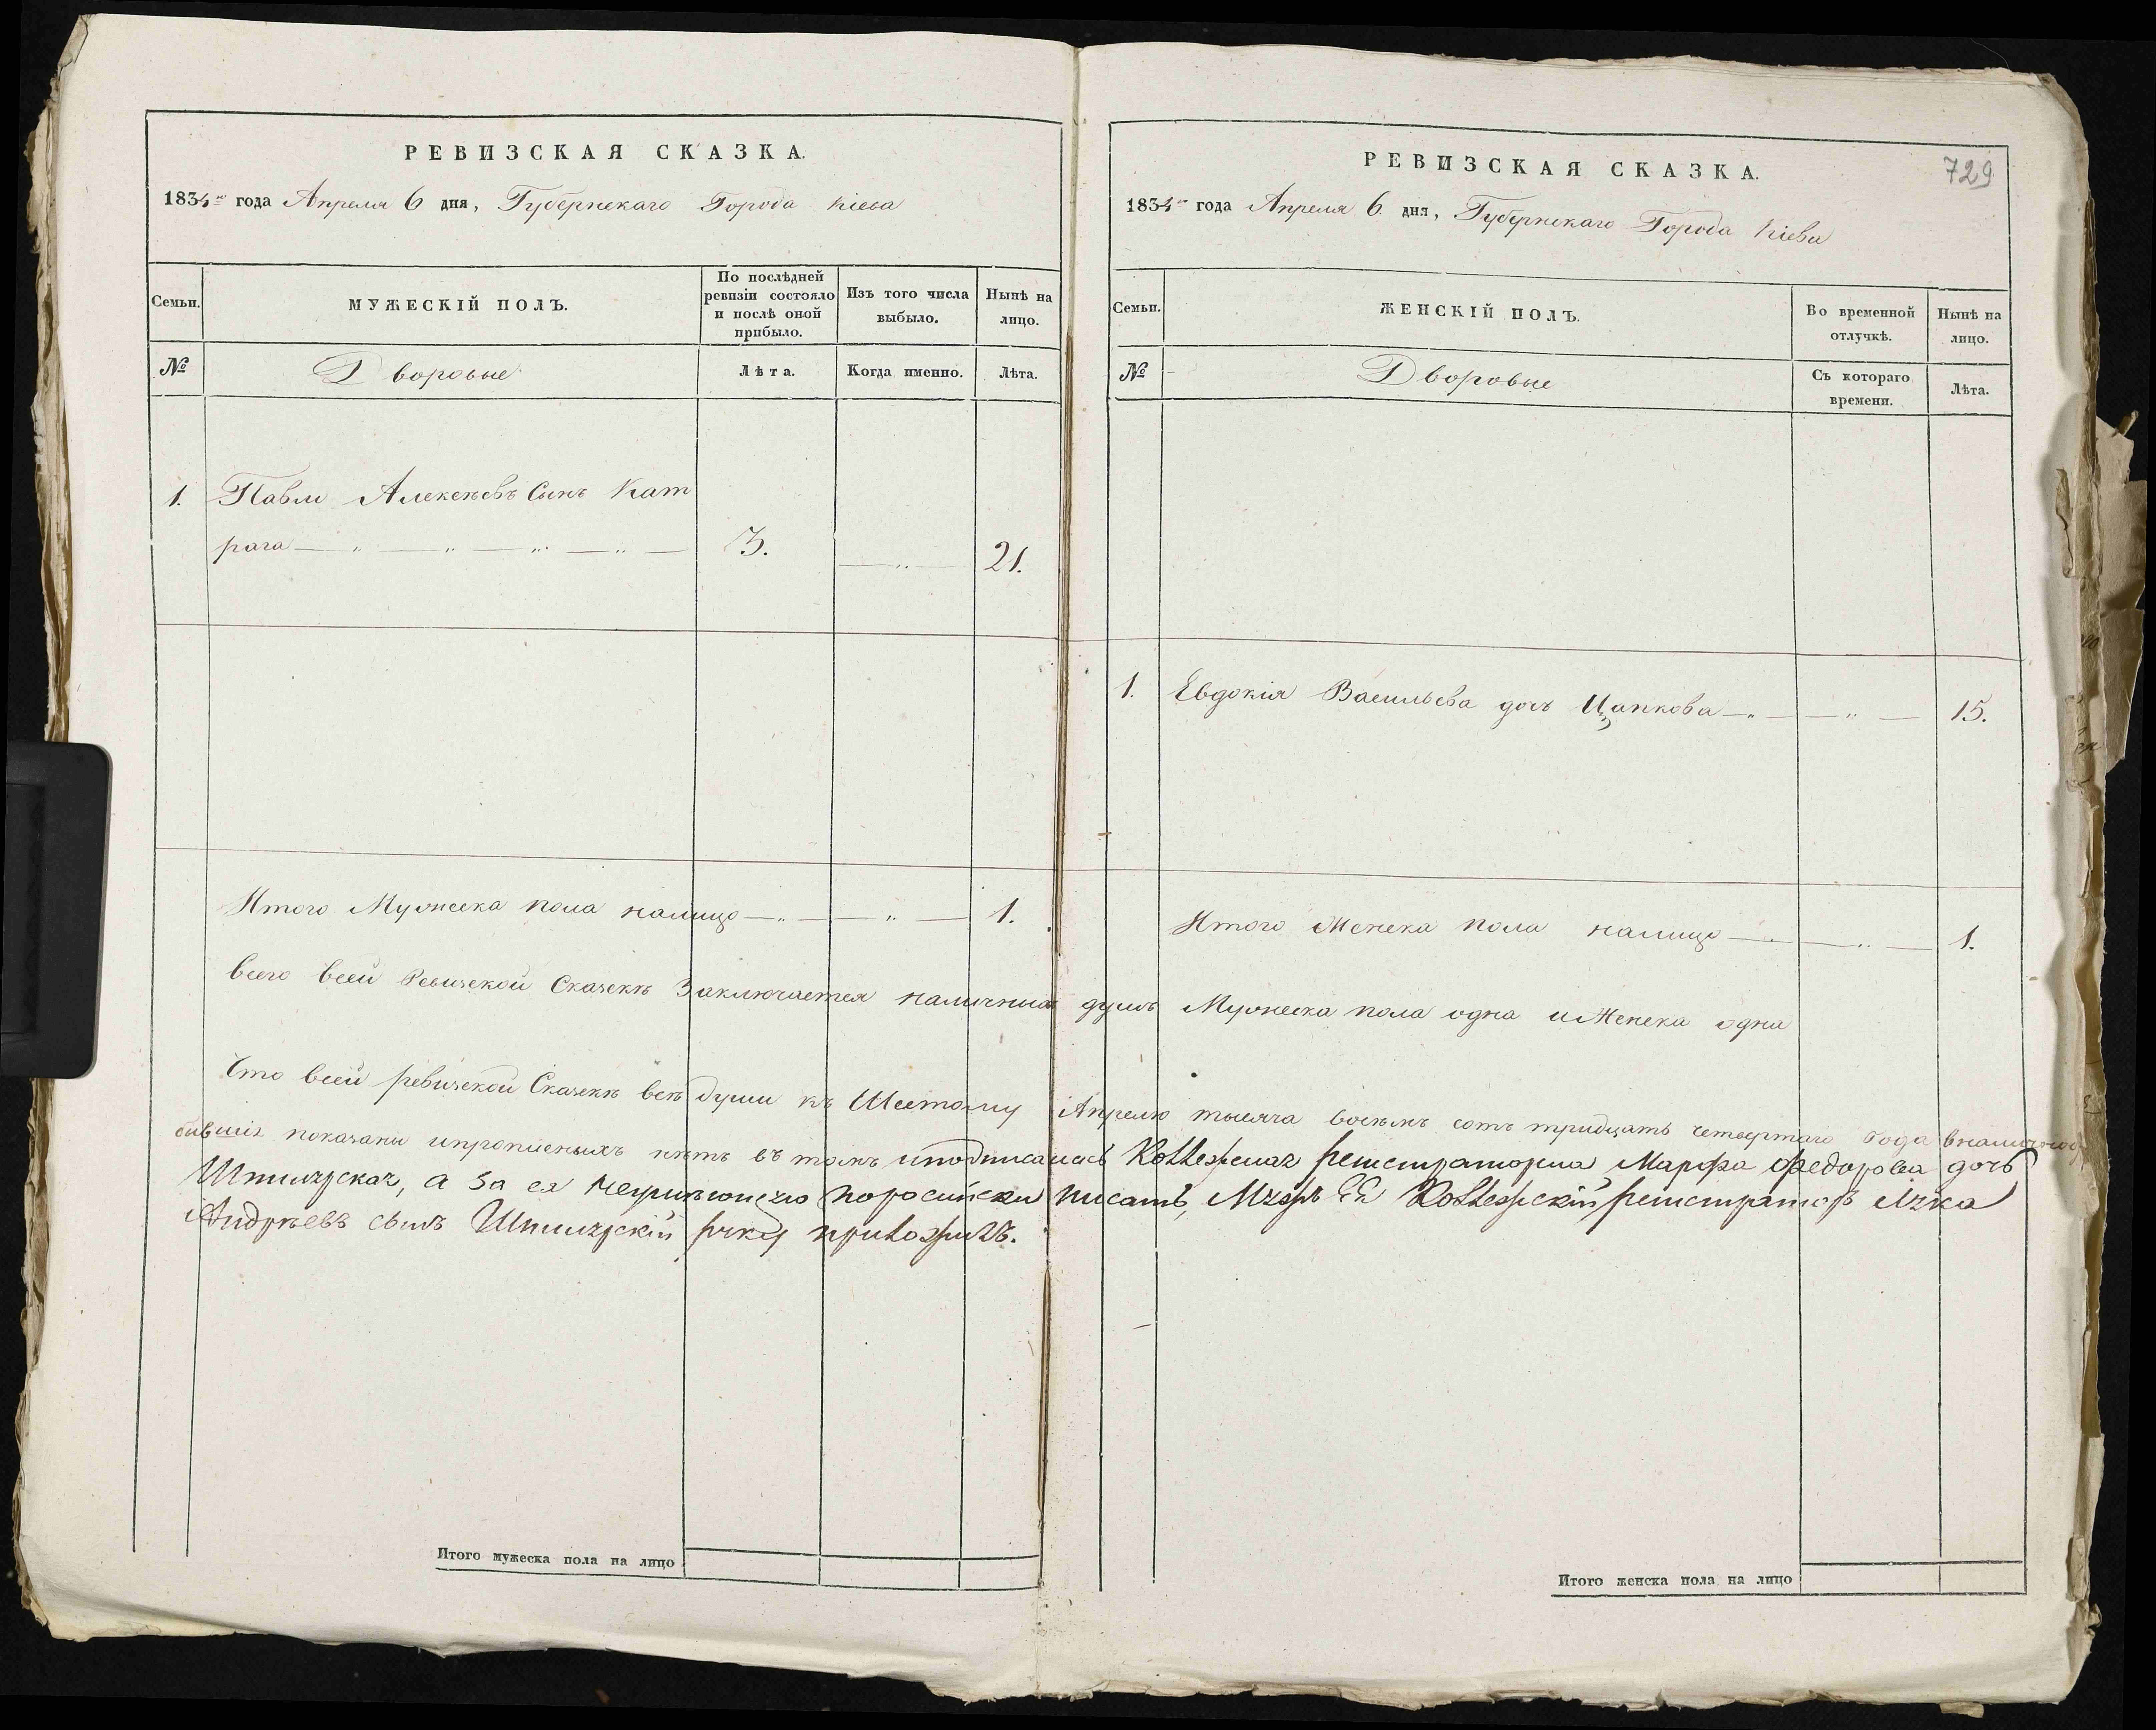 РЕВИЗСКАЯ СКАЗКА.
1834го года Апреля 6 дня, Губернскаго Города Кіева
Семьи.
МУЖЕСКІЙ ПОЛЪ.
По послѣдней ревизіи состояло и послѣ оной прибыло.
Изъ того числа выбыло.
Нынѣ на лицо.
№
Дворовые
Лѣта.
Когда именно.
Лѣта.
1. Павли Алексѣевъ Сынъ Кат
рага 3. 21.
Итого Мужеска пола налицо 1.
РЕВИЗСКАЯ СКАЗКА.
729
1834го года Апреля 6. дня, Губернскаго Города Кіева
Семьи.
ЖЕНСКІЙ ПОЛЪ.
Во временной отлучкѣ.
Нынѣ на лицо.
№
Дворовые
Съ котораго времени.
Лѣта.
1. Евдокія Васильева дочъ Цапкова 15.
Итого Женска пола налицо 1.
всего всей Ревизской Сказкѣ Заключается наличныхъ душъ Мужеска пола одна и Женска одна
Что всей ревизской Сказкѣ всѣ души къ Шестому Апрелю тысяча восемъ сотъ тридцать четвертаго Года
бывшія показаны ипрописныхъ нѣтъ въ томъ иподписалась Коллежская регистраторша Марфа Федорова дочь
а за ея поросийски писать, Мужъ Ея Коллежскій регистраторъ
Андрѣевъ сынъ руку приложилъ.
Итого мужеска пола на лицо
Итого женска пола на лицо